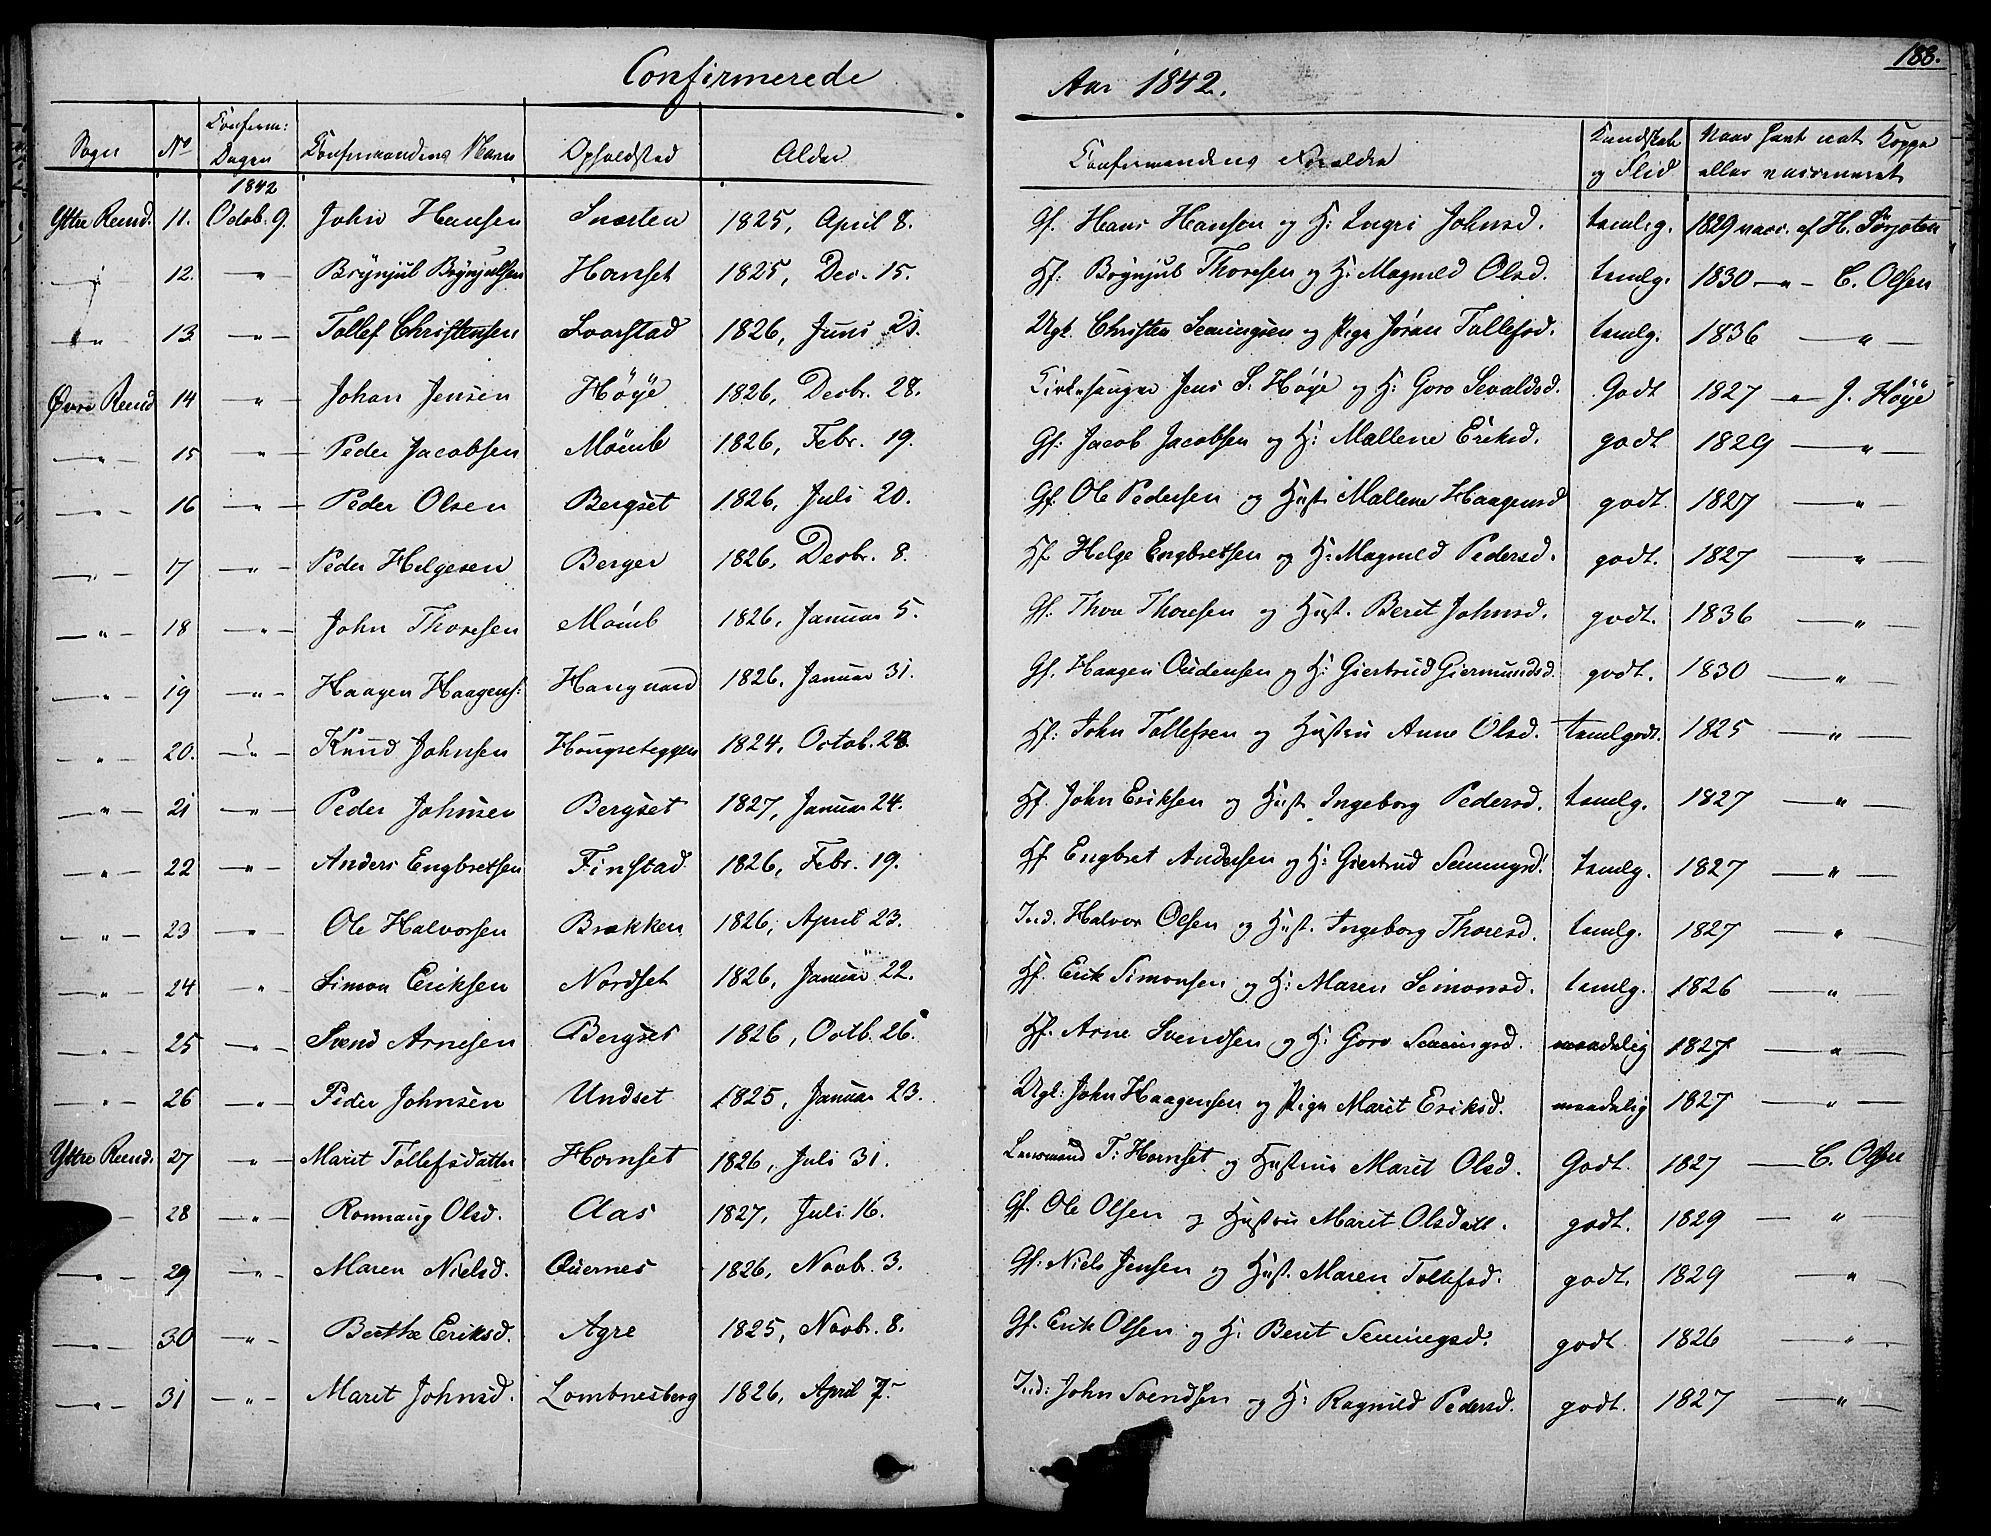 188.
Confirmerede Aar 1842.
Sogn No Conferm: Dagen Confirmandens Navn Opholdsted Alder Confirmandens Forældre Kundskab og Flid Naar havt nat. Kopper eller vaccineret
1842
Yttre Rend. 11. Octob. 9. John Hansen Snæsten 1825, April 8. Gf. Hans Hansen og H: Ingri Johnsd. temlig. 1829 vacc. af H. Sørjoten
" 12. " Brynjul Brynjulsen Hornset 1825, Dec. 15. Hf: Brynjul Thoresen og H: Magnild Olsd. temlg. 1830 " C. Olsen
" 13. " Tollef Christensen Loarstad 1826, Juni 21. Ugk. Christen Semingsen og Pige Jóran Tollefsd. temlg. 1836 "
Øvre Rend 14 " Johan Jensen Høÿe 1826, Decbr. 28. Kirkesanger Jens S. Høÿe og H: Goro Sevaldsd. Godt 1827 " J. Höÿe
" 15 " Peder Jacobsen Mömb 1826, Febr. 19. Gf: Jacob Jacobsen og H: Mallene Eriksd. godt 1829 "
" 16 " Peder Olsen Bergset 1826, Juli 20. Gf. Ole Pedersen og Hust. Mallene Haagensd godt. 1827 "
" 17 " Peder Helgesen Berger 1826, Decbr. 8. Hf Helge Engbretsen og H: Magnild Pedersd. godt. 1827 "
" 18 " John Thoresen Mömb 1826, Januar 5. Gf. Thore Thoresen og Hust. Berit Johnsd. godt. 1836 "
" 19 " Haagen Haagens: Hangaard 1826, Januar 31. Gf. Haagen Oudensen og H: Giertrud Giermundsd. godt. 1830 "
" 20. " Knud Johnsen Hougseteggen 1824, Octob. 28. Hf: John Tollefsen og Hustru Anne Olsd. temlgodt. 1825 "
" 21 " Peder Johnsen Bergset 1827, Januar 24. Hf. John Eriksen og Hust Ingeborg Pedersd. temlg. 1827 "
" 22 " Anders Engbretsen Finstad 1826, Febr. 19. Hf Engbret Andersen og H: Giertrud Semingsd. temlg. 1827 "
" 23 " Ole Halvorsen Brækken 1826, April 23. Ind. Halvor Olsen og Hust. Ingeborg Thoresd. temlg. 1827 "
" 24 " Simon Eriksen Nordset 1826, Januar 22. Hf. Erik Simonsen og H: Maren Simonsd. temlg. 1826 "
" 25 " Svend Arnesen Bergset 1826, Octb. 26. Hf. Arne Svendsen og H: Goro Semingsd. maadelig 1827 "
" 26 " Peder Johnsen Undset 1825, Januar 23. Ugk: John Haagensen og Pige Marit Eriksd. maadelig 1827 "
Yttre Rend. 27 " Marit Tollefsdatter Hornset 1826, Juli 31. Lensmand T: Hornset og Hustrue Marit Olsd. Godt. 1827 C. Olsen
28 " Ronnaug Olsd. Aas 1827, Juli 16. Gf. Ole Olsen og Hustru Marit Olsdatt. godt. 1829 "
" 29 " Maren Nielsd. Quernes 1826, Novbr. 3. Gf. Niels Jensen og Hust. Maren Tollefsd. godt. 1829 "
" 30 " Berthe Eriksd. Agre 1825, Novbr. 8. Gf. Erik Olsen og H. Berit Semingsd. godt 1826 "
" 31 " Marit Johnsd. Lombnesberg 1826, April 7. Ind: John Svendsen og H: Ragnild Pedersd. godt. 1827 "